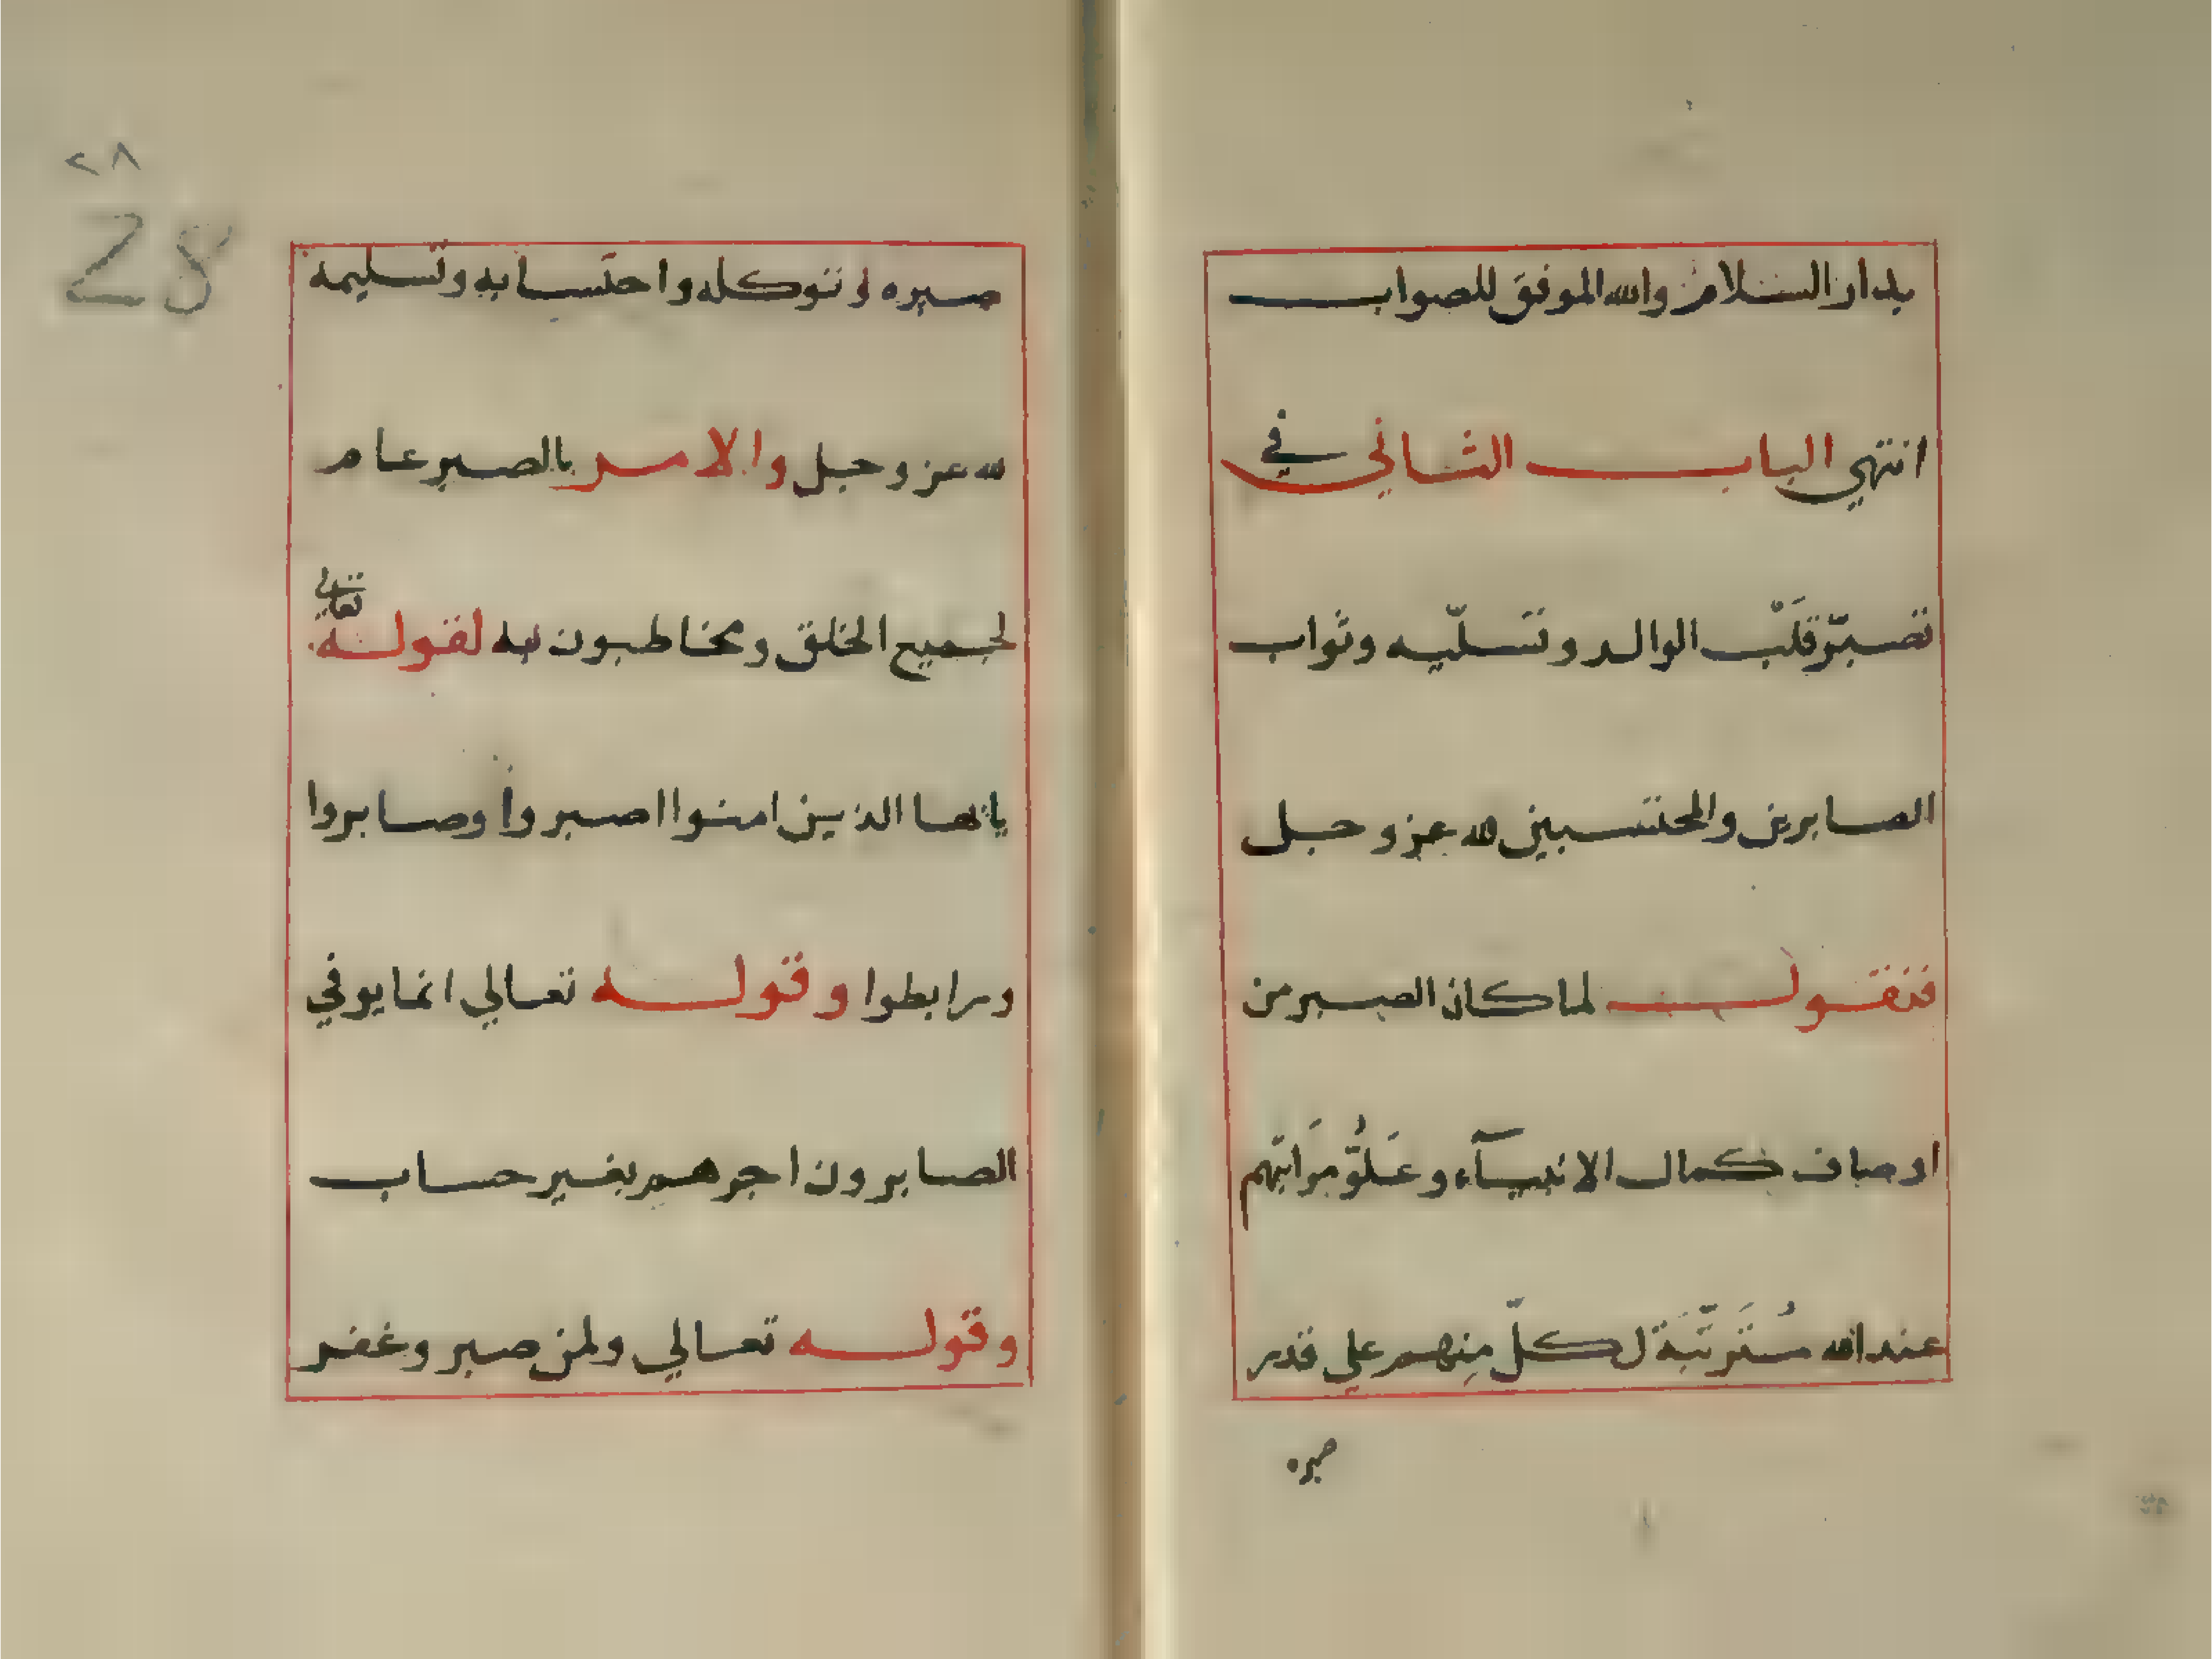 بدار السلام والله الموفق للصواب
انتهي الباب الثاني في
تصبّر قلب الوالد وتسلّيه وثواب
الصابرين والمحتسبين لله عز وجل
فنقول لما كان الصبر من
اوصاف كمال الانبيآء وعَلوُّ مَراتبهم
عند الله مُتَرتّبَة لكلّ منِهم علي قدر
صبره
٢٨
28
صبره وتوكله واحتسابه وتسليمه
لله عز وجل والامر بالصبر عام
لجميع الخلق ومخاطبون به لقوله تعالي
يايها الذين امنوا اصبروا وصابروا
ورابطوا وقوله تعالي انما يوفي
الصابرون اجرهم بغير حساب
وقوله تعالي ولمن صبر وغفر